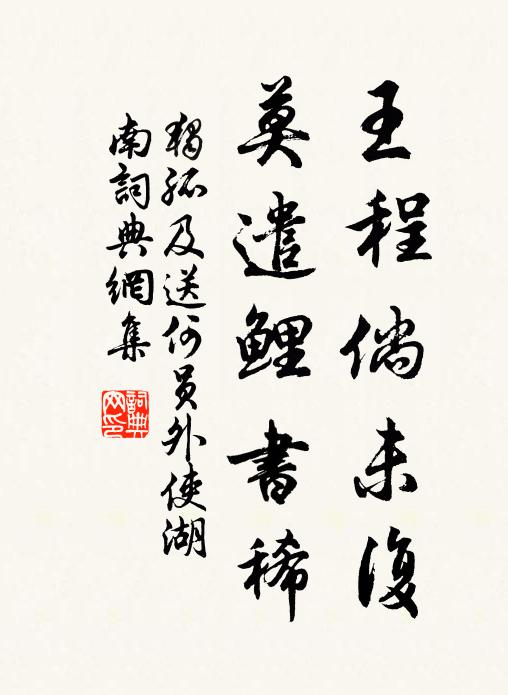 王程倘未復
莫遣鯉書稀
獨孤及送何員外使湖
南詞典網集
詞典網印